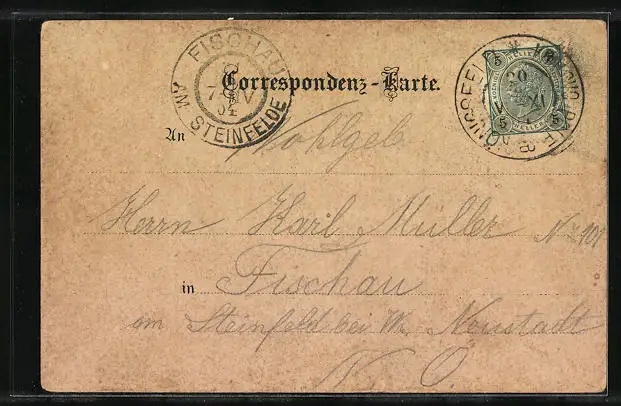 FISCHAU
AM STEINFELDE
Correspondenz-Karte.
5 5
HELLER
5 5
An Wohlgeb.
Herrn Karl Müller No 101
in Fischau
am Steinfeld bei Wr. Neustadt
N. Ö.